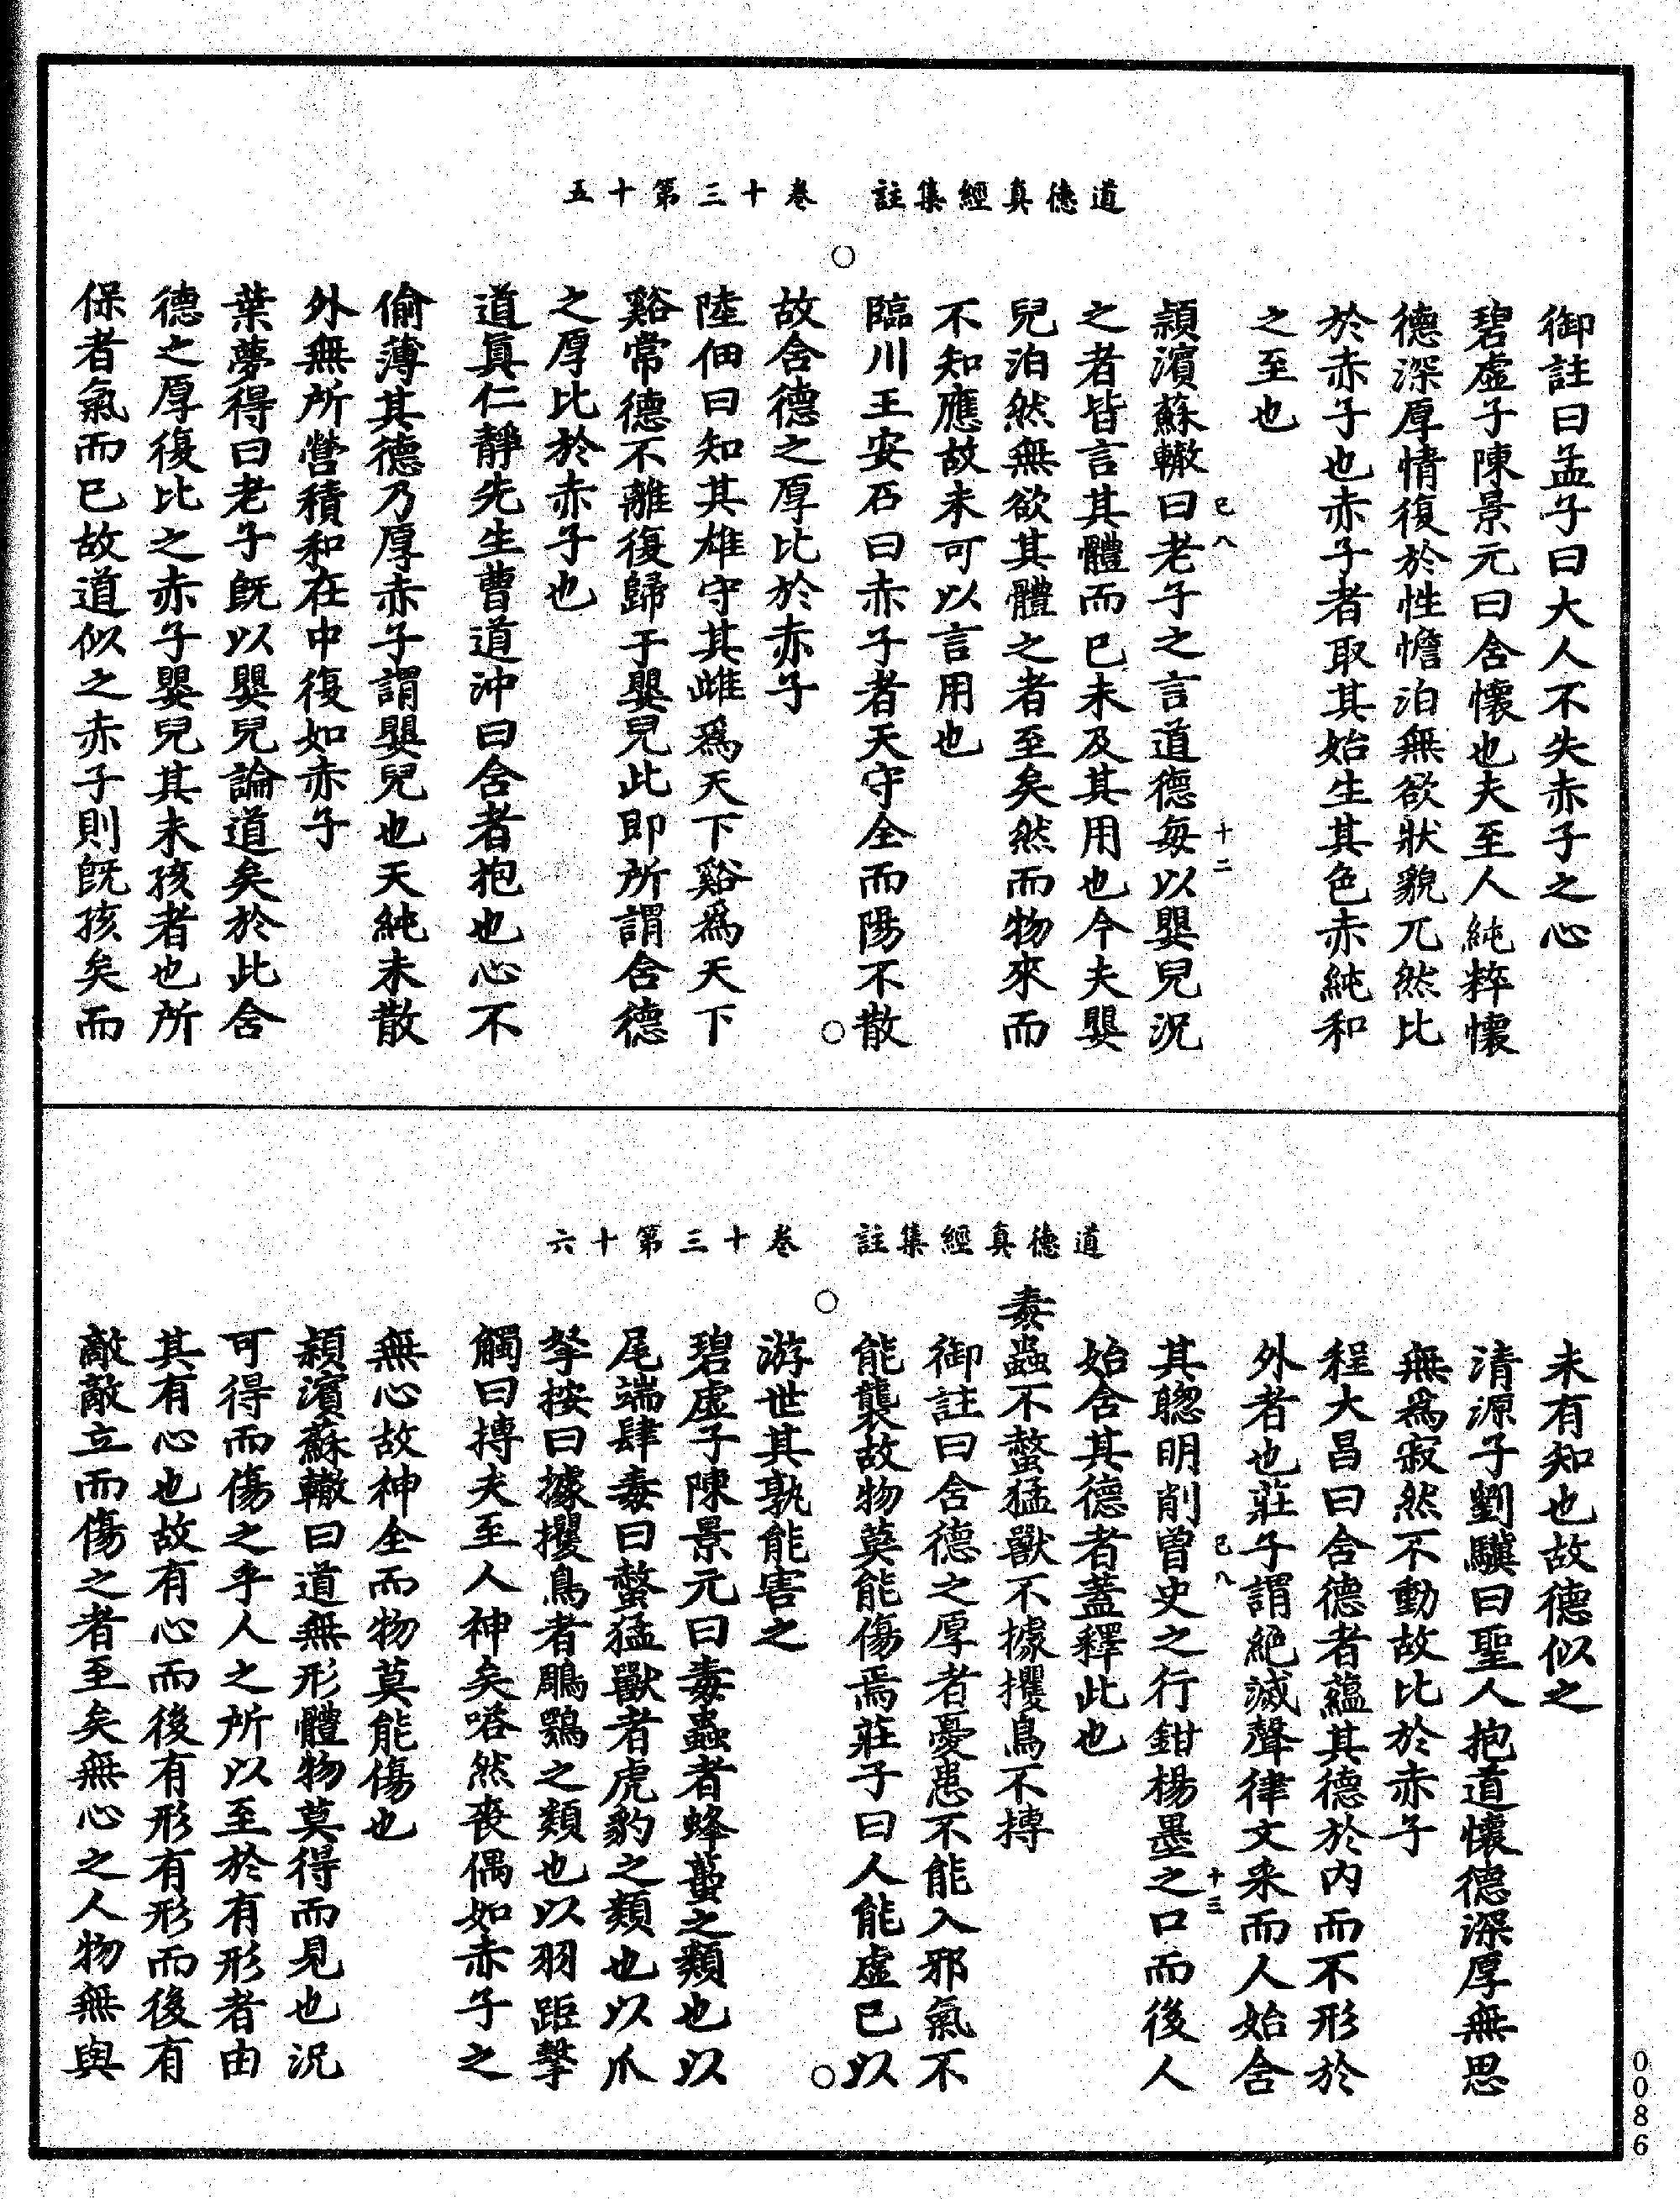 道德真經集註　卷十三第十五
御註曰孟子曰大人不失赤子之心
碧虛子陳景元曰含懷也夫至人純粹懷
德深厚情復於性憺泊無欲狀貌兀然比
於赤子也赤子者取其始生其色赤純和
之至也
潁濱蘇轍曰老子之言道德每以嬰兒況
之者皆言其體而已未及其用也今夫嬰
兒泊然無欲其體之者至矣然而物來而
不知應故未可以言用也
臨川王安石曰赤子者天守全而陽不散
故含德之厚比於赤子
陸佃曰知其雄守其雌爲天下谿爲天下
谿常德不離復歸于嬰兒此即所謂含德
之厚比於赤子也
道真仁靜先生曹道沖曰含者抱也心不
偷薄其德乃厚赤子謂嬰兒也天純未散
外無所營積和在中復如赤子
葉夢得曰老子旣以嬰兒論道矣於此含
德之厚復比之赤子嬰兒其未孩者也所
保者氣而已故道似之赤子則旣孩矣而
己八
十二
道德真經集註　卷十三第十六
未有知也故德似之
清源子劉驥曰聖人抱道懷德深厚無思
無爲寂然不動故比於赤子
程大昌曰含德者蘊其德於內而不形於
外者也莊子謂絕滅聲律文采而人始含
其聰明削曾史之行鉗楊墨之口而後人
始含其德者蓋釋此也
毒蟲不螫猛獸不據攫鳥不搏
御註曰含德之厚者憂患不能入邪氣不
能襲故物莫能傷焉莊子曰人能虛己以
游世其孰能害之
碧虛子陳景元曰毒蟲者蜂蠆之類也以
尾端肆毒曰螫猛獸者虎豹之類也以爪
拏按曰據攫鳥者鵰鶚之類也以羽距擊
觸曰搏夫至人神矣嗒然喪偶如赤子之
無心故神全而物莫能傷也
潁濱蘇轍曰道無形體物莫得而見也況
可得而傷之乎人之所以至於有形者由
其有心也故有心而後有形有形而後有
敵敵立而傷之者至矣無心之人物無與
己八
十三
0086